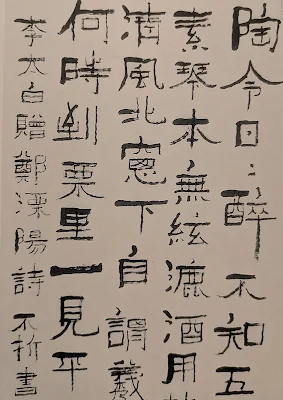 陶令日〻醉不知五
素琴本無絃漉酒用
清風北窗下自謂羲
何時到栗里一見平
李太白贈鄭溧陽詩不折書